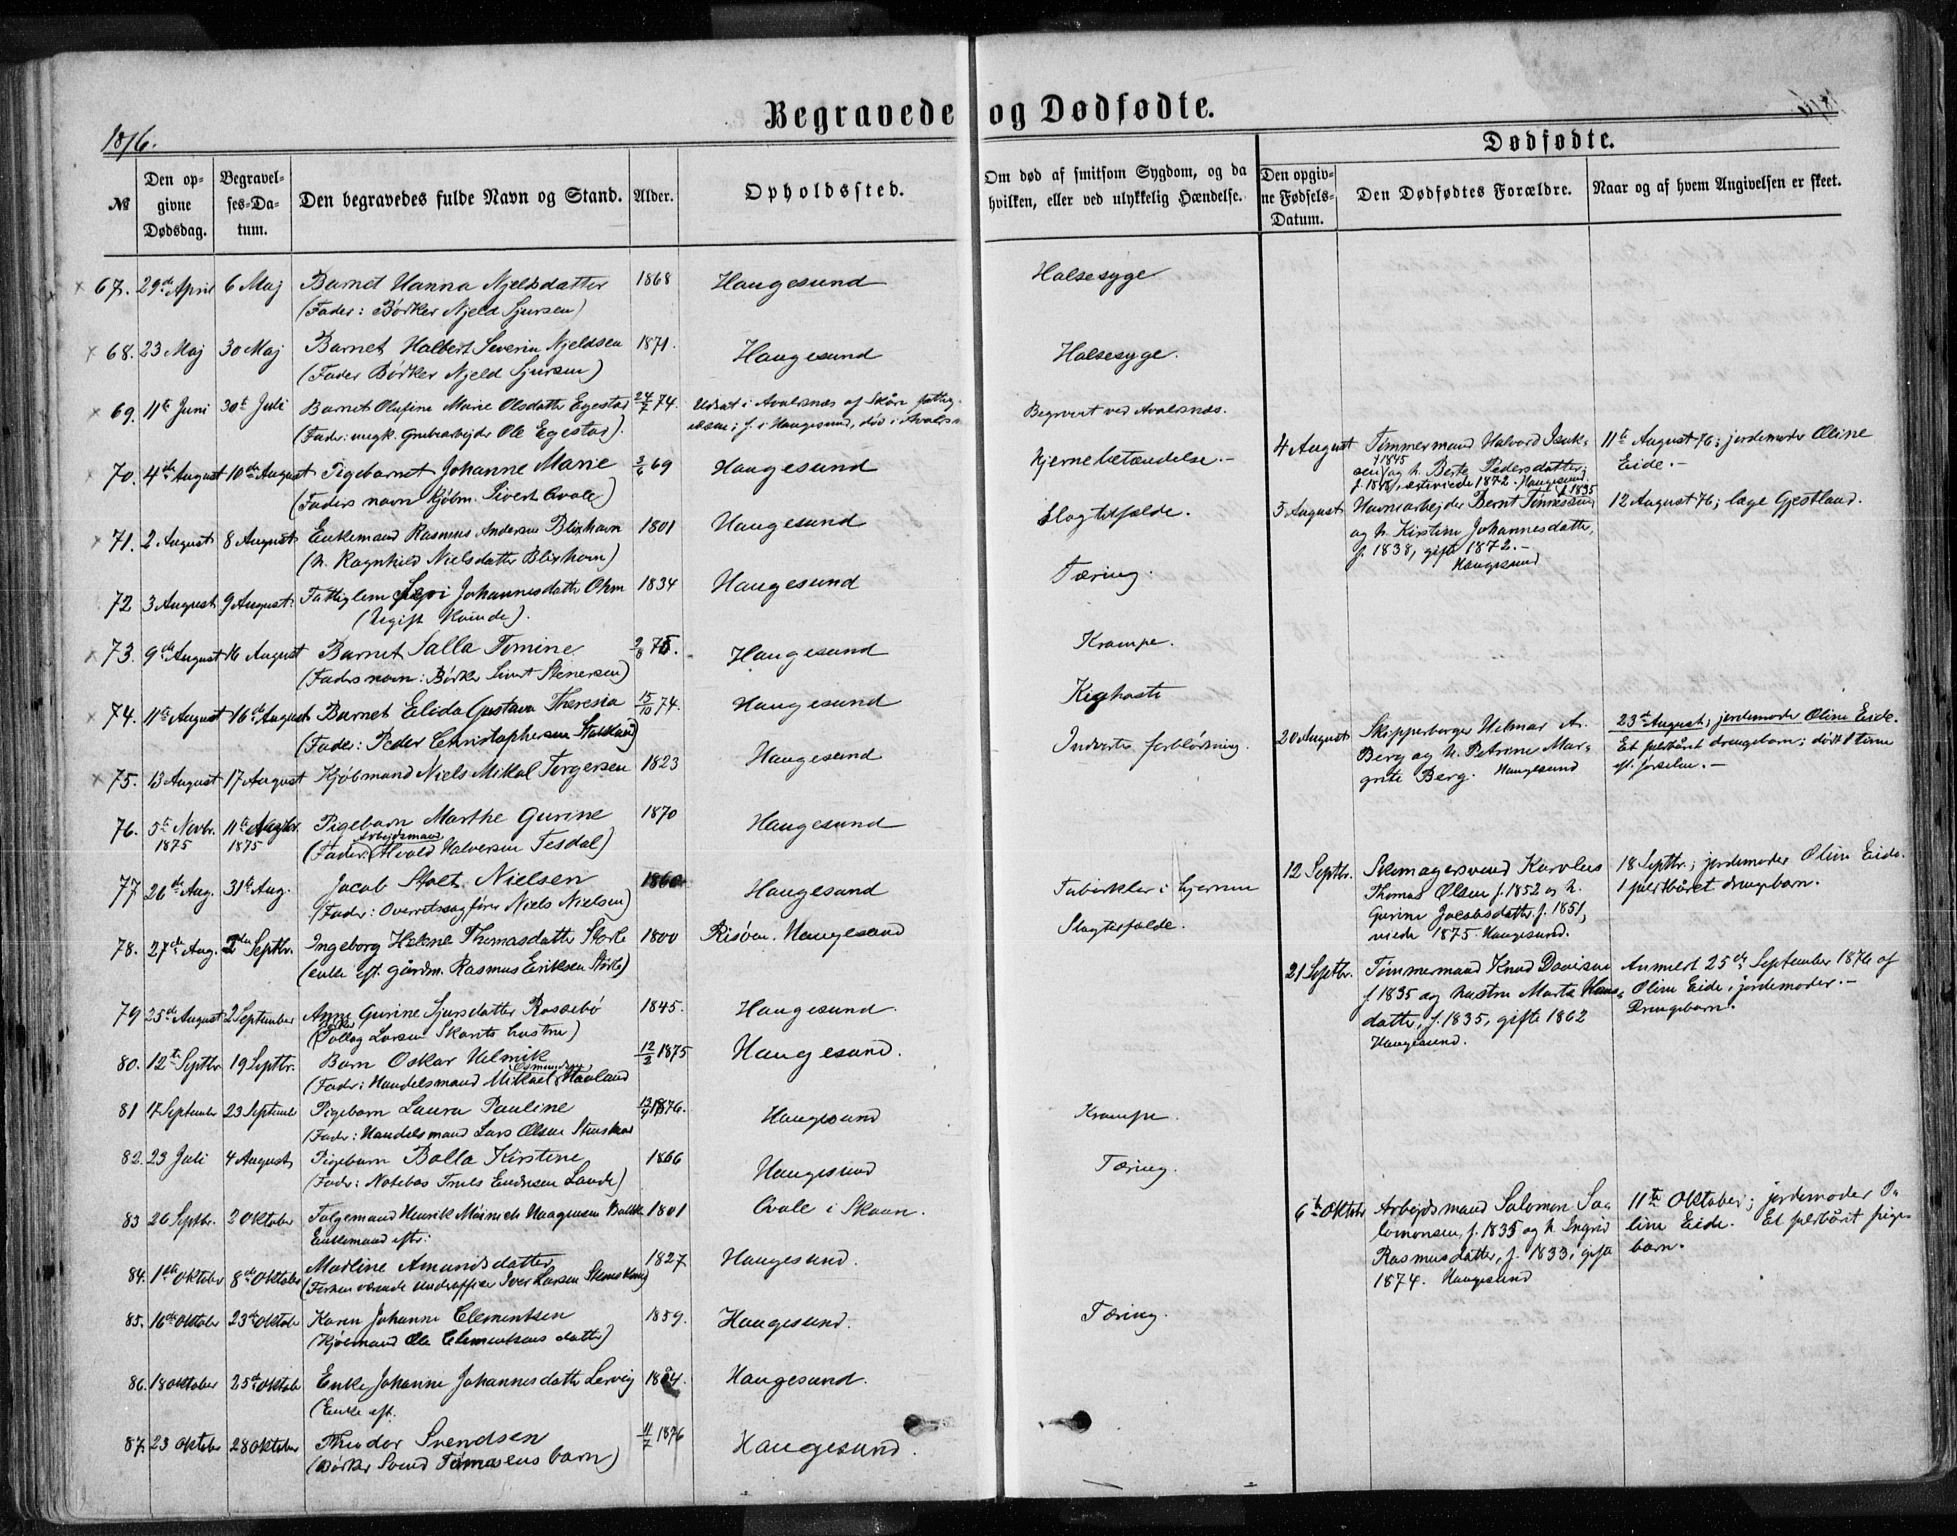 Begravede og Dødfødte.
1876.
1876.
Dødfødte.
№
Den opgivne Dødsdag.
Begravelses-Datum.
Den begravedes fulde Navn og Stand.
Alder.
Opholdssted.
Om død af smitsom Sygdom, og da hvilken, eller ved ulykkelig Hændelse.
Den opgivne Fødsels-Datum.
Den Dødfødtes Forældre.
Naar og af hvem Angivelsen er skeet.
67. 29de April 6 Maj Barnet Hanna Njeldsdatter 1868 Haugesund Halsesyge
(Fader: Bødker Njeld Sjursen)
68. 23 Maj 30 Maj Barnet Halbert Severin Njeldsen 1871. Haugesund Halsesyge.
(Fader Bødker Njeld Sjursen)
69. 11te Juni 30te Juli Barnet Olufine Marie Olsdatter Egestad 24/7 74. Udsat i Avalsnæs af Skåre fattig-
Begravet ved Avalsnæs.
(Fader: ungk. Grubearbejder Ole Egestad). f. i Haugesund, død i
70. 4de August 10de August Pigebarnet Johanne Marie 3/6 69 Haugesund Hjernebetændelse.-
(Faders navn Kjøbm. Sivert Qvale)
71. 2 August 8 August Enkemand Rasmus Andersen Blixhavn 1801 Haugesund Slagtilfælde.
(h. Ragnhild Nielsdatter Blixhavn)
72 3 August 9 August. Fattiglem Johannesdatter Ohm 1834 Haugesund Tæring.
(Ugift Kvinde).
73. 9de August 16 August Barnet Salla Tomine 2/8 75. Haugesund Krampe.
(Faders navn: Bødker Sivert Stenersen)
74. 11te August 16de August Barnet Elida Gustava Theresia 15/10 74. Haugesund Kighoste
(Fader: Peder Christophersen Stakland)
75. 13 August 17 August Kjøbmand Niels Mikal Torgersen 1823 Haugesund Indvortes forblødning.
76. 5te Novbr. 1875 11te Novbr. 1875 Pigebarn Marthe Gurine 1870 Haugesund
Arbejdsmand
(Fader: Halversen Tesdal)
77 26de Aug. 31te Aug. Jacob Stolt Nielsen 1860 Haugesund Tuberkler i hjernen
(Fader: Overretssagfører Niels Nielsen)
78. 27de Aug. 2den Septbr. Ingeborg Helene Thomasdatter Storle 1800 Risöen. Haugesund Slagtilfælde.
(enke eft. gårdm. Rasmus Eriksen Storle)
79 25de August 2 September Anne Gurine Sjursdatter Rossebø 1845. Haugesund.
Larsen Skarits hustru)
80. 12te Septbr. 19 Septbr. Barn Oskar Helmik 12/3 1875 Haugesund.
Osmundsen
(Fader: Handelsmand Mikael Havland
81 17 September 23 September Pigebarn Laura Pauline 1876. Haugesund Krampe.
(Fader: Handelsmand Lars Olsen Stenskar
82. 23 Juli 4 August Pigebarn Bolla Kirstine 1866 Haugesund Tæring.
(Fader: Notebas Truls Endresen Lande)
83 26 Septbr. 2 Oktober Tolgemand Henrik Meinich Haagensen 1801 Qvale i Skaan.
Enkemand efter:
84. 1ste Oktober 8de Oktober Marline Amundsdatter 1827 Haugesund.
(Forhenværende Underofficer Iver Larsen
85. 16de Oktober 23de Oktober Karen Johanne Clementsen 1859. Haugesund. Tæring.
(Kjøbmand Ole Clementsens datter)
86. 18 Oktober 25de Oktober Enke Johanne Johannesdatter Lervig 18 4. Haugesund.
(Enke eft.
87. 23 Oktober 28 Oktober Theodor Svendsen 11/7 1876 Haugesund.
(Bødker Svend Tømasens barn)
4 August Tømmermand Halvord Isak- 11te August 76; jordemoder Oline
f 1845
sen og h. Berte Pedersdatter; Eide.-
f. 1848, ægteviede 1872. Haugesund.
f. 1835
5 August Havnearbejder Bernt Tønnesen 12 August 76; læge Gjestland.
og h. Kirstine Johannesdatter,
f. 1838, gift 1872.-
Haugesund
20 August Skipperborger Helmar A. 23de August; jordemoder Oline Eide.
Berg og h. Petrine Mar- Et fuldbåret drengebarn; dødt 1 time
grete Berg. Haugesund ef. førselen.-
12 Septbr. Skomagersvend Karolus 18 Septbr.; jordemoder Oline Eide.
Thomas Olsen f. 1852 og h. 1 fuldbåret drengebarn.
Gurine Jacobsdatter f. 1851,
viede 1875 Haugesund.
21 Septbr. Tømmermand Knud Davidsen Anmeldt 25de September 1876 af
f 1835 og hustru Marta Hans- Oline Eide, jordemoder.-
datter, f. 1835, gifte 1862 Drengebarn.
Haugesund.
6te Oktober Arbejdsmand Salomon Sa- 11te Oktober; jordemoder O-
lomonsen, f. 1835 og h. Ingrid line Eide. Et fuldbåret pige-
Rasmusdatter, f. 1833, gift barn.
1874. Haugesund